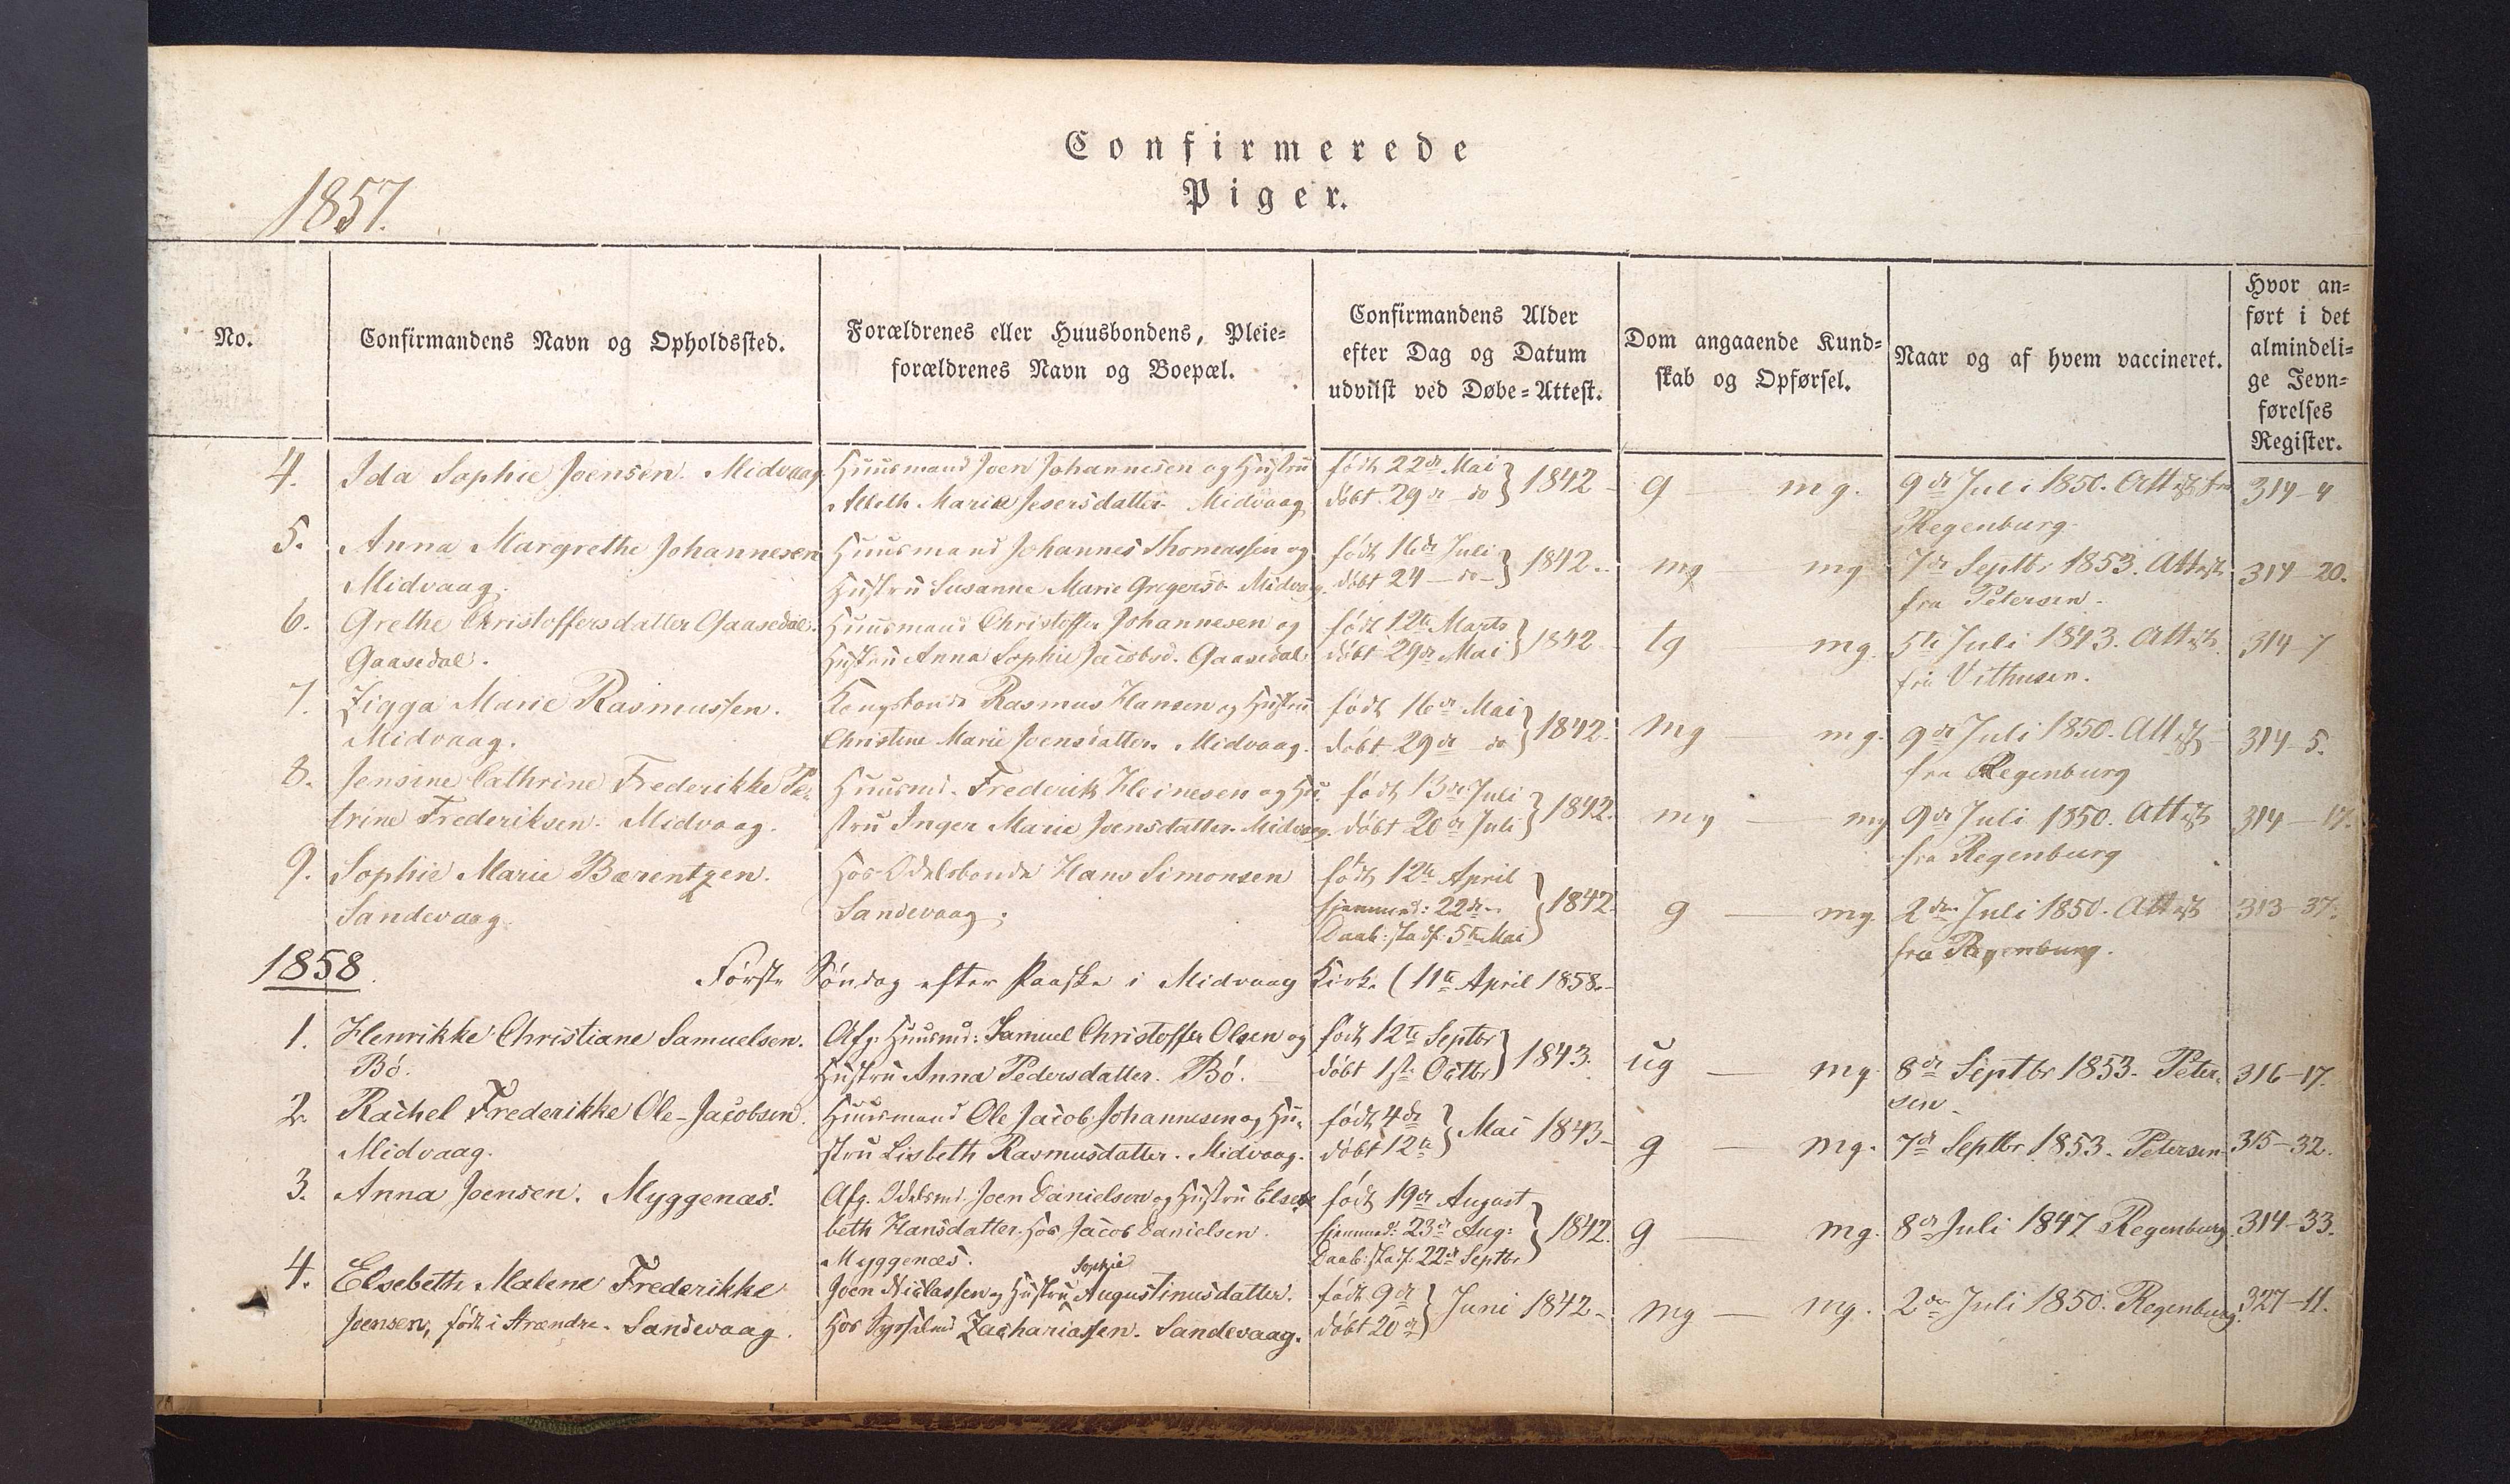 Confirmerede
Piger.
1857.
No.
Confirmandens Navn og Opholdssted.
Forældrenes eller Huusbondens, Pleie=
forældrenes Navn og Boepæl.
Confirmandens Alder
efter Dag og Datum
udviist ved Døbe=Attest.
Dom angaaende Kund=
skab og Opførsel.
Naar og af hvem vaccineret.
Hvor an=
ført i det
almindeli=
ge Jevn=
førelses
Register.
4. Ida Sophie Joensen. Midvaag.
Huusmand Joen Johannesen og Hustru
Marie Midvaag
født 22de Mai
døbt 29de do } 1842
g mg.
9de Juli 1850. Attest fra
Regenburg.
314-4
5. Anna Margrethe Johannesen
Midvaag.
Huusmand Johannes Thomassen og
Hustru Susanne Marie Gregersd. Midvaag.
født 16de Juli
døbt 24 - do - } 1842.
mg mg
7de Septbr 1853. Attest
fra Petersen.
314-20.
6. Grethe Christoffersdatter Gaasedal.
Gaasedal.
Huusmand Christoffer Johannesen og
Hustru Anna Sophie Jacobsd. Gaasedal
født 12te Marts
døbt 29de Mai } 1842
tg mg.
5te Juli 1843. Attest
fra Vithusen.
314-7
7. Zigga Marie Rasmussen.
Midvaag.
Kongsbonde Rasmus Hansen og Hustru
Christine Marie Joensdatter. Midvaag.
født 16de Mai
døbt 29de do } 1842.
mg mg.
9de Juli 1850. Attest
fra Regenburg
314-5.
8. Jensine Cathrine Frederikke Pe-
trine Frederiksen. Midvaag.
Huusmd. Frederik Heinesen og Hu-
stru Inger Marie Joensdatter. Midvaag.
født 13de Juli
døbt 20de Juli } 1842.
mg mg
9de Juli 1850. Attest
fra Regenburg
314-17.
9. Sophie Marie Bærentzen.
Sandevaag.
Hos Odelsbonde Hans Simonsen
Sandevaag.
født 12te April
hjemmed: 22de
Daab: stadf: 5te Mai } 1842.
g mg.
2den Juli 1850. Attest
fra Regenburg.
313-37.
1858.
Første Søndag efter Paaske i Midvaag Kirke (11te April 1858.
1. Henrikke Christiane Samuelsen.
Bø.
Afg. Huusmd: Samuel Christoffer Olsen og
Hustru Anna Pedersdatter. Bø.
født 12te Septbr
døbt 1ste Octbr } 1843.
ug mg.
8de Septbr 1853. Peter-
sen.
316-17.
2. Rachel Frederikke Ole-Jacobsen.
Midvaag.
Huusmand Ole Jacob Johannesen og Hu-
stru Lisbeth Rasmusdatter. Midvaag.
født 4de
døbt 12te } Mai 1843
g mg.
7de Septbr 1853. Petersen
315-32.
3. Anna Joensen. Myggenæs.
Afg. Odelsmd. Joen Danielsen og Hustru Else-
beth Hansdatter. Hos Jacob Danielsen.
Myggenæs.
født 19de August
hjemmed: 23de Aug:
Daab: stadf: 22de Septbr } 1842.
g mg.
8de Juli 1847 Regenburg.
314-33.
4. Elsebeth Malene Frederikke
Joensen, født i Strændre. Sandevaag.
Sophie
Joen Niclassen og Hustru Augustinusdatter.
Hos Sysselmd Zachariassen. Sandevaag.
født 9de
døbt 20de } Juni 1842
mg mg.
2den Juli 1850. Regenburg.
327-11.